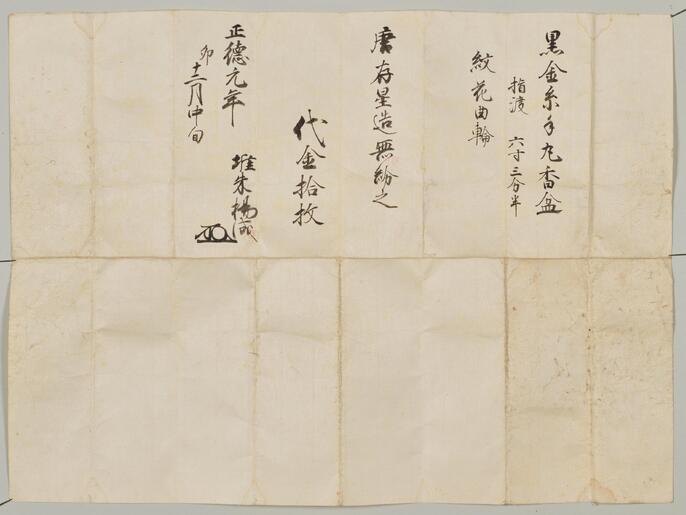 黒金糸手丸香盆
指渡 六寸三分半
紋花曲輪
唐存星造無紛之
代金拾枚
正徳元年
卯十二月中旬
堆朱楊成